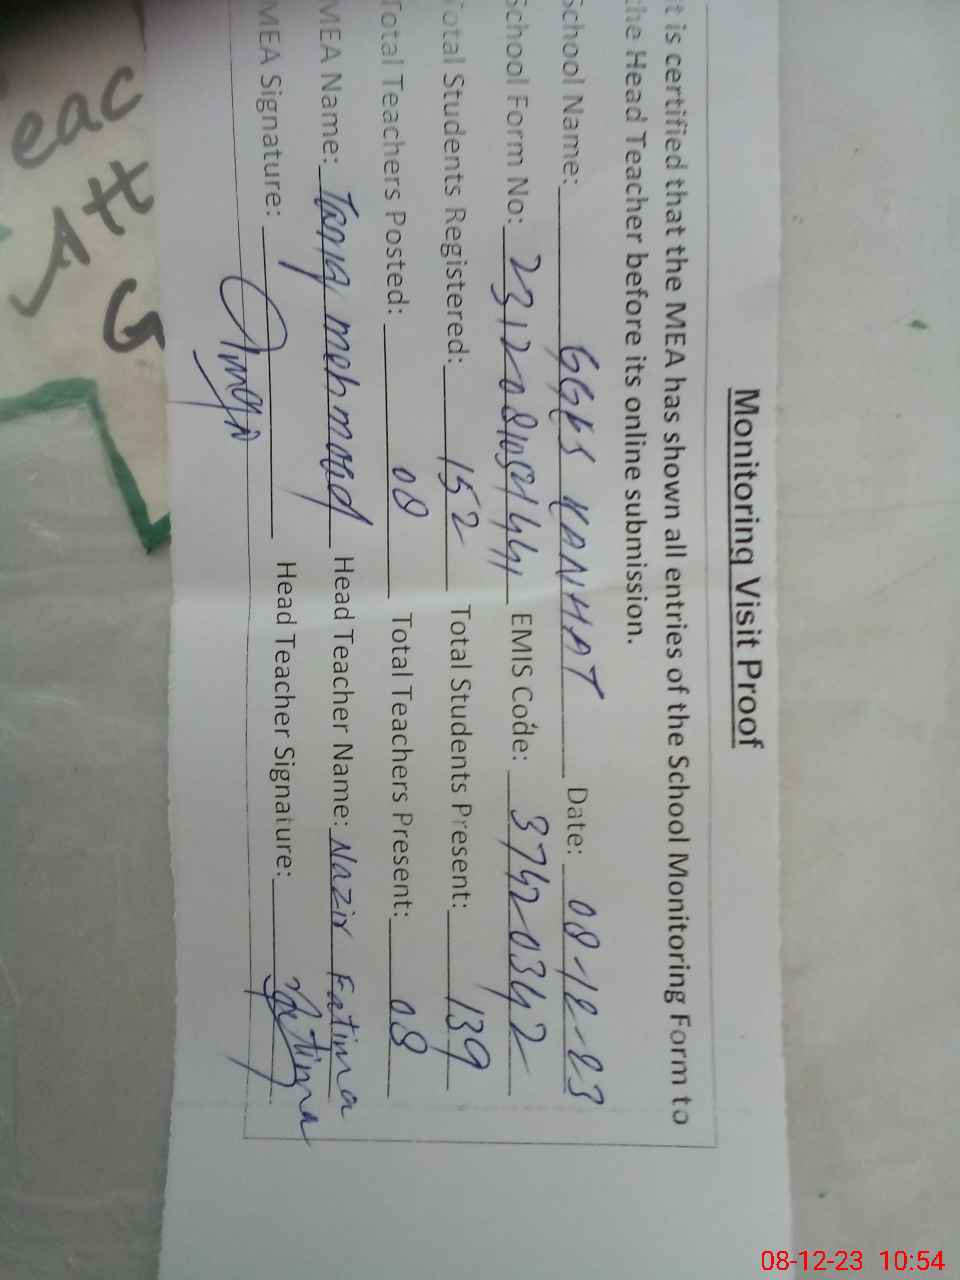 Monitoring Visit Proof
t is certified that the MEA has shown all entries of the School Monitoring Form to
the Head Teacher before its online submission.
School Name: GGES KANHAT Date: 08-12-23
School Form No: EMIS Code: 37420342
Total Students Registered: 152 Total Students Present: 139
Total Teachers Posted: 08 Total Teachers Present: 08
MEA Name: Tariq mehmood Head Teacher Name: Nazir Fatima
MEA Signature: Head Teacher Signature: Fatima
eac
08-12-23 10:54